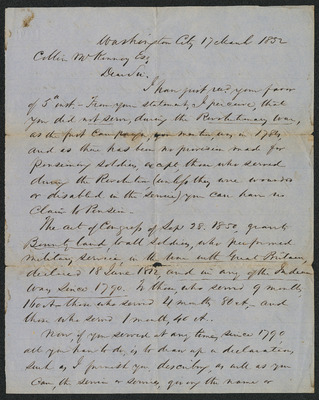 Washington City 17 March 1852
Collin McKinney Esq
Dear Sir.
I have just recd your favor
of 5th inst. - From your statement, I perceive that
you did not serve, during the Revolutionary War,
as the first Campaign, you mention, was in 1784,
and as there has been no provision made for
Pensioning soldiers, except those who served
during the Revolution (unless they were wounded
or disabled in the service) you can have no
Claim to Pension.
The act of Congress of Sept 28. 1850, grants
Bounty Land, to all soldiers, who performed
military service, in the War with Great Britain,
declared 18 June 1812, and in any of the Indian
Wars since 1790. To those who served 9 months,
160 A. those who served 4 months 80 A., and
those who served 1 month, 40 A.
Now, if you served at any time, since 1790
all you have to do, is to draw up a declaration,
such as I furnish you, describing, as well as you
can, the service or services, giving the name or